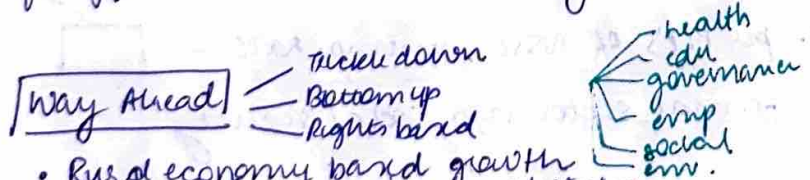 Way Ahead
Trickle down
Bottom up
Rights based
health
edu
governance
emp
social
env.
• Rural economy based growth